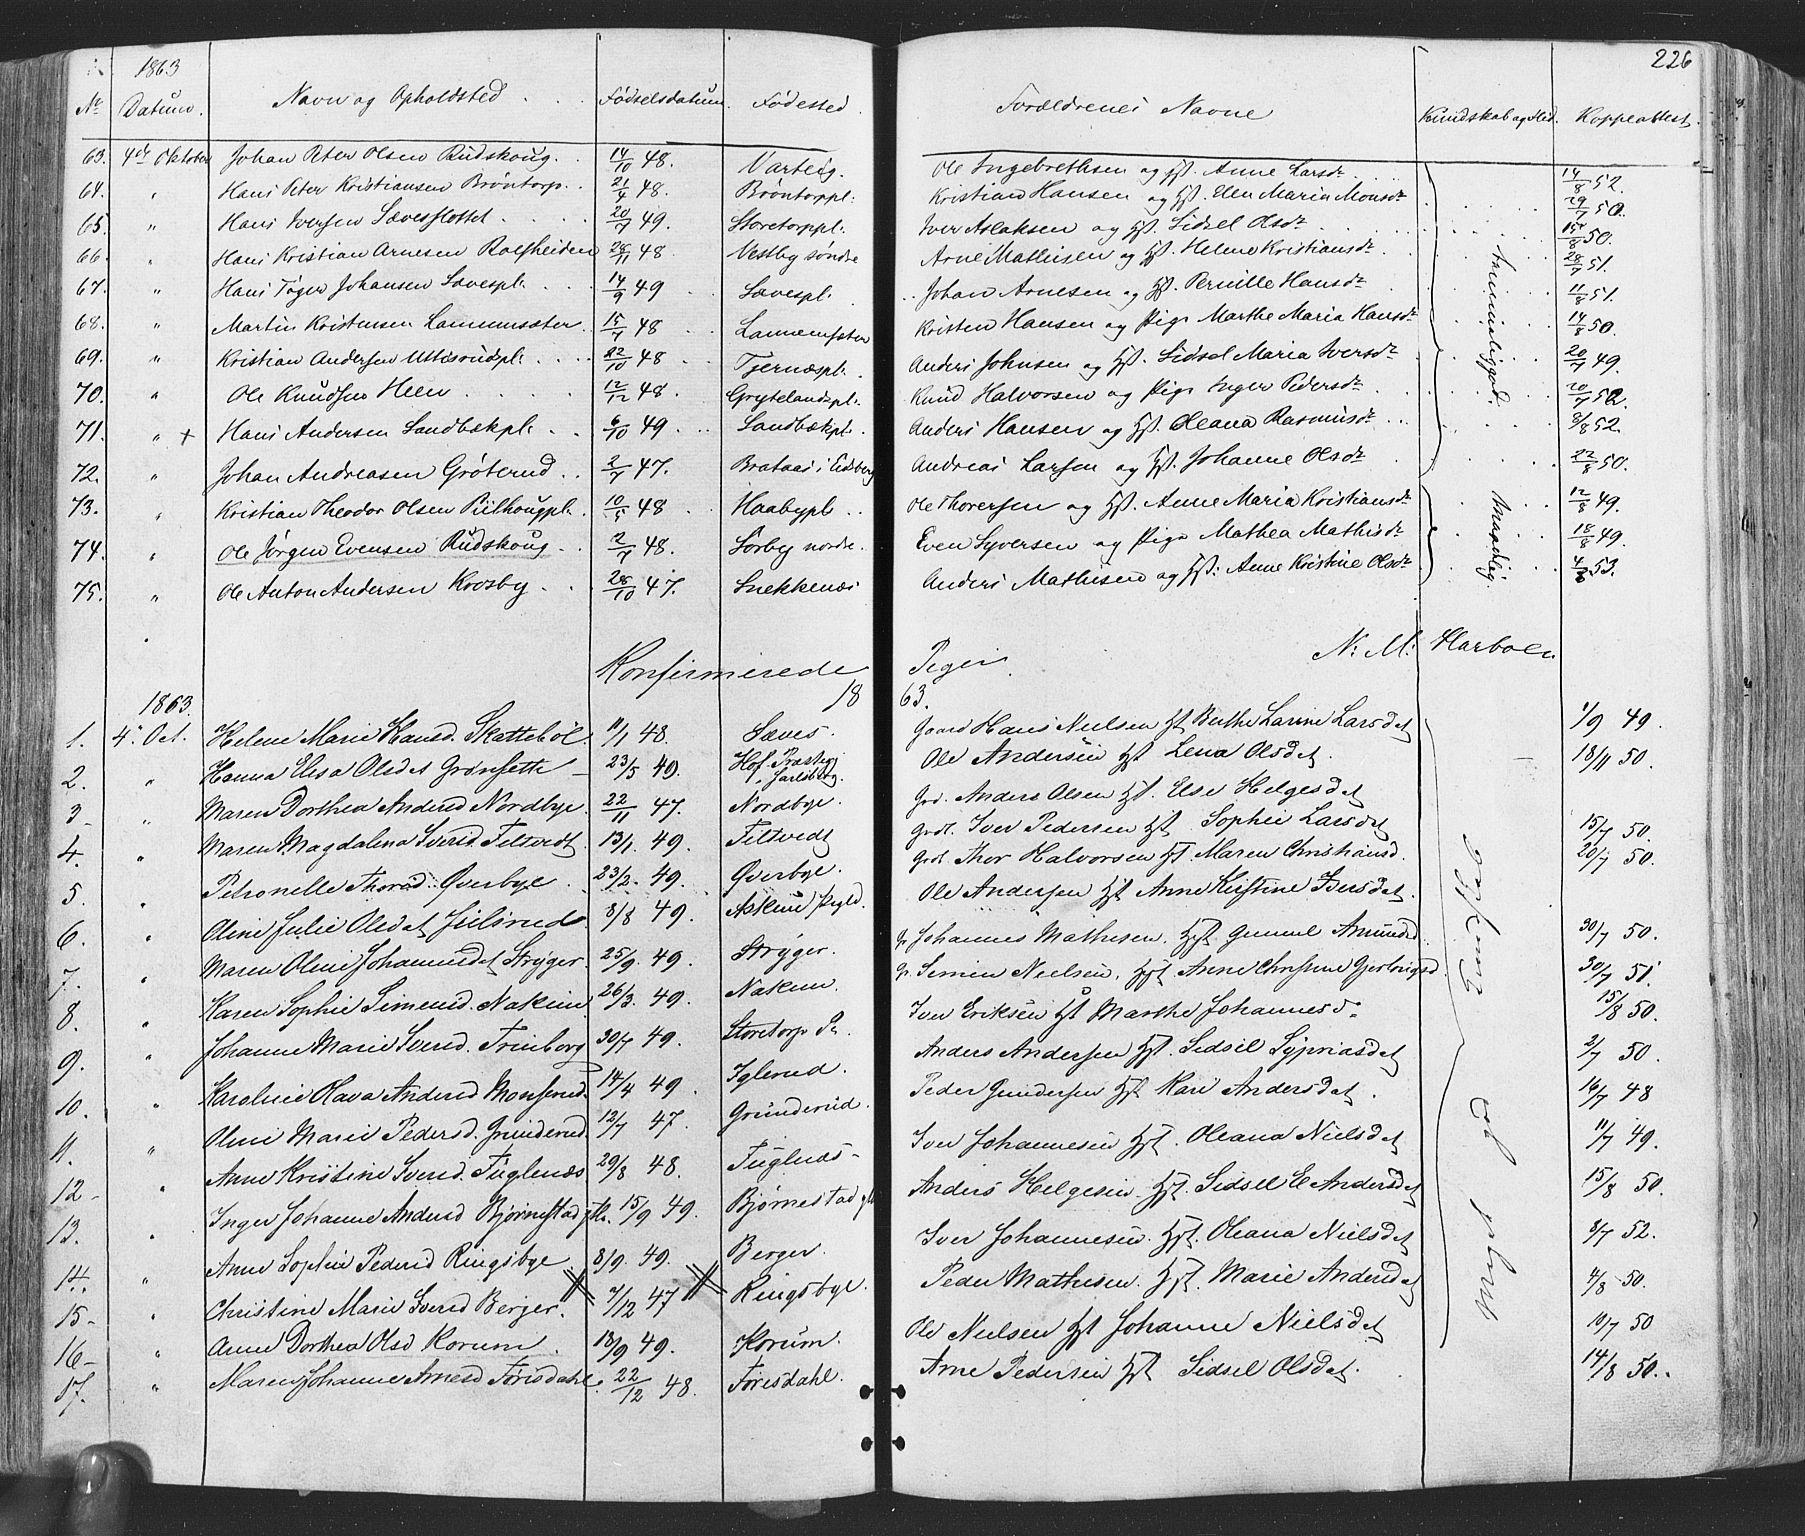 1863
226
No Datum. Navn og Opholdsted Fødselsdatum. Fødested. Forældrenes Navne Kundskab og Flid. Koppeattest.
63. 4de Oktober Johan Peter Olsen Rudskoug. 14/10 48. Varteig. Ole Ingebrethsen og Hst. Anne Larsdr 14/8 52.
64. " Hans Peter Kristiansen Bröntorp. 21/4 48. Bröntorppl. Kristian Hansen og Hst. Elen Maria Monsdr 29/7 50.
65. " Hans Iversen Sævesslottet 20/7 49 Storetorppl. Iver Aslaksen og Hst. Sidsel Olsdr 15/8 50.
66. " Hans Kristian Arnesen Rolfsheiden 28/11 48 Vestby søndre Arne Mathisen og Hst. Helene Kristiansdr 28/7 51.
67. " Hans Töger Johansen Sævespl. 14/9 49 Sævespl. Johan Arnesen og Hst. Pernille Hansdr 11/8 51.
68. " Martin Kristensen Lannemsæter 15/7 48 Lannemsæter Kristen Hansen og Pige Marthe Maria Hansdr 14/8 50.
69. " Kristian Andersen Uttisrudpl. 22/10 48 Tjernæspl. Anders Johnsen og Hst. Sidsel Maria Iversdr 20/7 49.
70. " Ole Knudsen Heen 12/12 48 Grytelandspl. Knud Halvorsen og Pige Inger Pedersdr 20/7 52.
71. " + Hans Andersen Sandbækpl. 6/10 49 Sandbækpl. Anders Hansen og Hst. Oleana Rasmusdr 8/8 52.
72. " Johan Andreasen Gröterud 2/7 47. Brataas i Eidsberg Andreas Larsen og Hst. Johanne Olsdr 22/8 50.
73. " Kristian Theodor Olsen Piilhougpl. 10/5 48 Haabypl. Ole Thoresen og Hst. Anne Maria Kristiansdr 12/8 49.
74. " Ole Jörgen Evensen Rudskoug 2/7 48. Sörby nordre. Even Syversen og Pige Mathea Mathisdr 18/8 49.
75. " Ole Anton Andersen Krosby 28/10 47. Snekkenæs Anders Mathisen og Hst: Anne Kristine Olsdr 4/8 53.
maadelig.
N: M: Harboe
Konfirmerede Piger
1863.
1863.
1. 4. Oct. Helene Marie Hansd. Skatteböl 11/1 48. Sæves. Gaard Hans Nielsen Hst Berthe Larine Larsdet 1/9 49.
2. " Hanna Elisa Olsdet Grönsette 23/5 40. Hof Præstegj Jarlsberg. Ole Andersen Hst. Lena Olsdet. 18/11 50.
3 " Maren Dorthea Andersd Nordbye 22/11 47. Nordbye. Grd. Anders Olsen Hst. Else Helgesdet
4. " Maren Magdalena Iversd. Filtvedt 13/1 49. Filtvedt Grdt. Iver Pedersen Hst Sophie Larsdet 15/7 50.
5 " Petronelle Thorsd. Överbye. 23/2. 49. Överbye. Grdt Thor Halvorsen Hst Maren Christiansd. 20/7 50.
6. " Oline Julie Olsdet Juilsrud 8/8 49. Askim Pregld. Ole Andersen Hst Anne Kirstine Iversdet
7. " Maren Oline Johannesdet Stryger 25/9. 49. Stryger. Johannes Mathesen. Hst. Gunnel Amundsd. 30/7 50.
8. " Karen Sophie Simensd. Nakim 26/3. 49. Nakim. Simen Nielsen. Hst Anne Christine Gjerlougsd. 30/7 51
9. " Johanne Marie Iversd. Frinborg 30/7 49. Storetorp Pr. Iver Eriksen Hst Marthe Johannesd. 15/8 50.
10. " Karoline Olava Andersd Monserud. 14/4 49. Iglerud. Anders Andersen Hst. Sidsil Sypriasdet 2/7 50.
11. " Oline Marie Pedersd. Grunderud 12/7 47. Grunderud. Peder Gundersen Hst Kari Andersdet. 16/7 48
12 - " Anne Kristine Iversd. Fuglenæs 29/8 48. Fuglenæs - Iver Johannesen Hst. Oleana Nielsdet 11/7 49.
13. " Inger Johanne Andersd Bjørnestad 15/9 49. Bjørnestad Anders Helgesen Hst. Sidsel E Andersdet 15/8 50.
14. " Anne Sophie Pedersd Ringsbye 8/9. 49. Berger. Iver Johannesen. Hst. Oleana Nielsdet 8/7 52.
15 - " Christine Marie Iversd Berger. 7/12 47 Ringsbye. Peder Mathesen. Hst. Marie Andersdet 4/8 50.
16 - " Anne Dorthea Olsd Korum 18/9 49. Korum. Ole Nielsen Hst Johanne Nielsdet 10/7 50
17. " Maren Johanne Arnesd Forisdahl. 22/12 48. Forisdahl. Arne Pedersen Hst Sidsel Olsdet. 14/8 50.